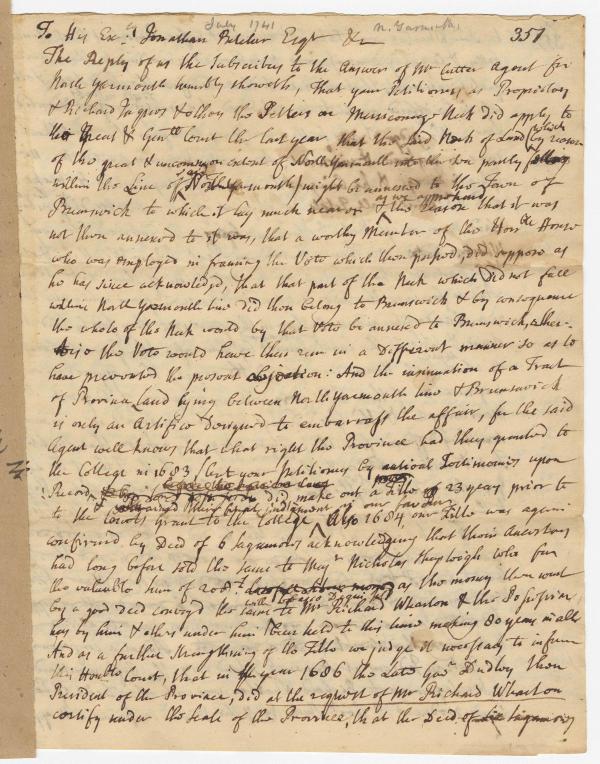 July 1741
N. Yarmouth.
351
To His Exc.y Jonathan Belcher Esqr &c
The Reply of us the Subscribers to the Answer of Mr Cutter Agent for
North Yarmouth humbly sheweth, That your Petitioners as Proprietors
& Richard Jaques & others the Settlers on Merriconeag Neck did apply to
the Great & Genll Court the last year that the said Neck of Land (which by reason
of the great & uncommon extent of North Yarmouth into the Sea partly falls
within the Line of said North Yarmouth) might be annexed to the Town of
Brunswick to which it lay much nearer & the reason as we apprehend that it was
not then annexed to it was, that a worthy Member of the Honble House
who was employed in framing the Vote which then passed, did suppose as
he has since acknowledged, that that part of the Neck which did not fall
within North Yarmouth line did then belong to Brunswick & by consequence
the whole of the Neck would by that Vote be annexed to Brunswick, other-
-wise the Vote would have then run in a Different manner so as to
have prevented the present objection: And the insinuation of a Tract
of Province Land lying between North Yarmouth line & Brunswick
is only an Artifice Designed to embarrass the affair, for the said
Agent well knows that what right the Province had they granted to
the College in 1683, but your Petitioners by Testimonies upon
Record did make out a Title 23 years prior to
& obtained their final judgment in our favour
to the Courts grant to the College Also 1684 our Title was again
confirmed by Deed of 6 Sagamores acknowledging that their Ancestors
had long before sold the same to Mr Nicholas Shapleigh who for
the valuable sum of as the money then went
by a good Deed convey'd the same to Mr Richard Wharton & the Possession
has by him & others under him been held to this time making 80 years in all
And as a further strengthening of the Title we judge it necessary to inform
this Honble Court, that in the year 1686 the Late Govr Dudley then
President of the Province, did at the request of Mr Richard Wharton
certify under the Seale of the Province, that the Deed of Sagamores